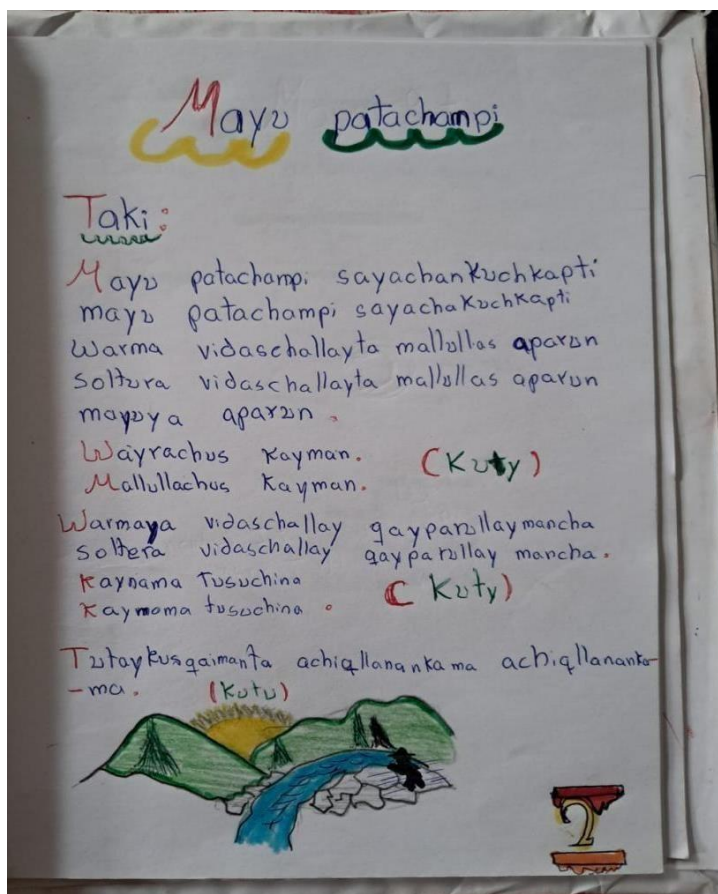 Mayu patachampi
Taki:
Mayu patachampi sayachankuchkapti
mayu patachampi sayachakuchkapti
Warma vidaschallayta mallullas aparun
Soltura vidaschallayta mallullas aparun
mayuya aparun.
Wayrachus Kayman. (Kuty)
Mallullachus Kayman.
Warmaya vidaschallay qayparullaymancha
Soltera vidaschallay qayparullay mancha.
Kaynama Tusuchina (Kuty)
Kaymoma tusuchina.
Tutaykusqaimanta achiqllanankama achiqllananka-
-ma. (Kutu)
2